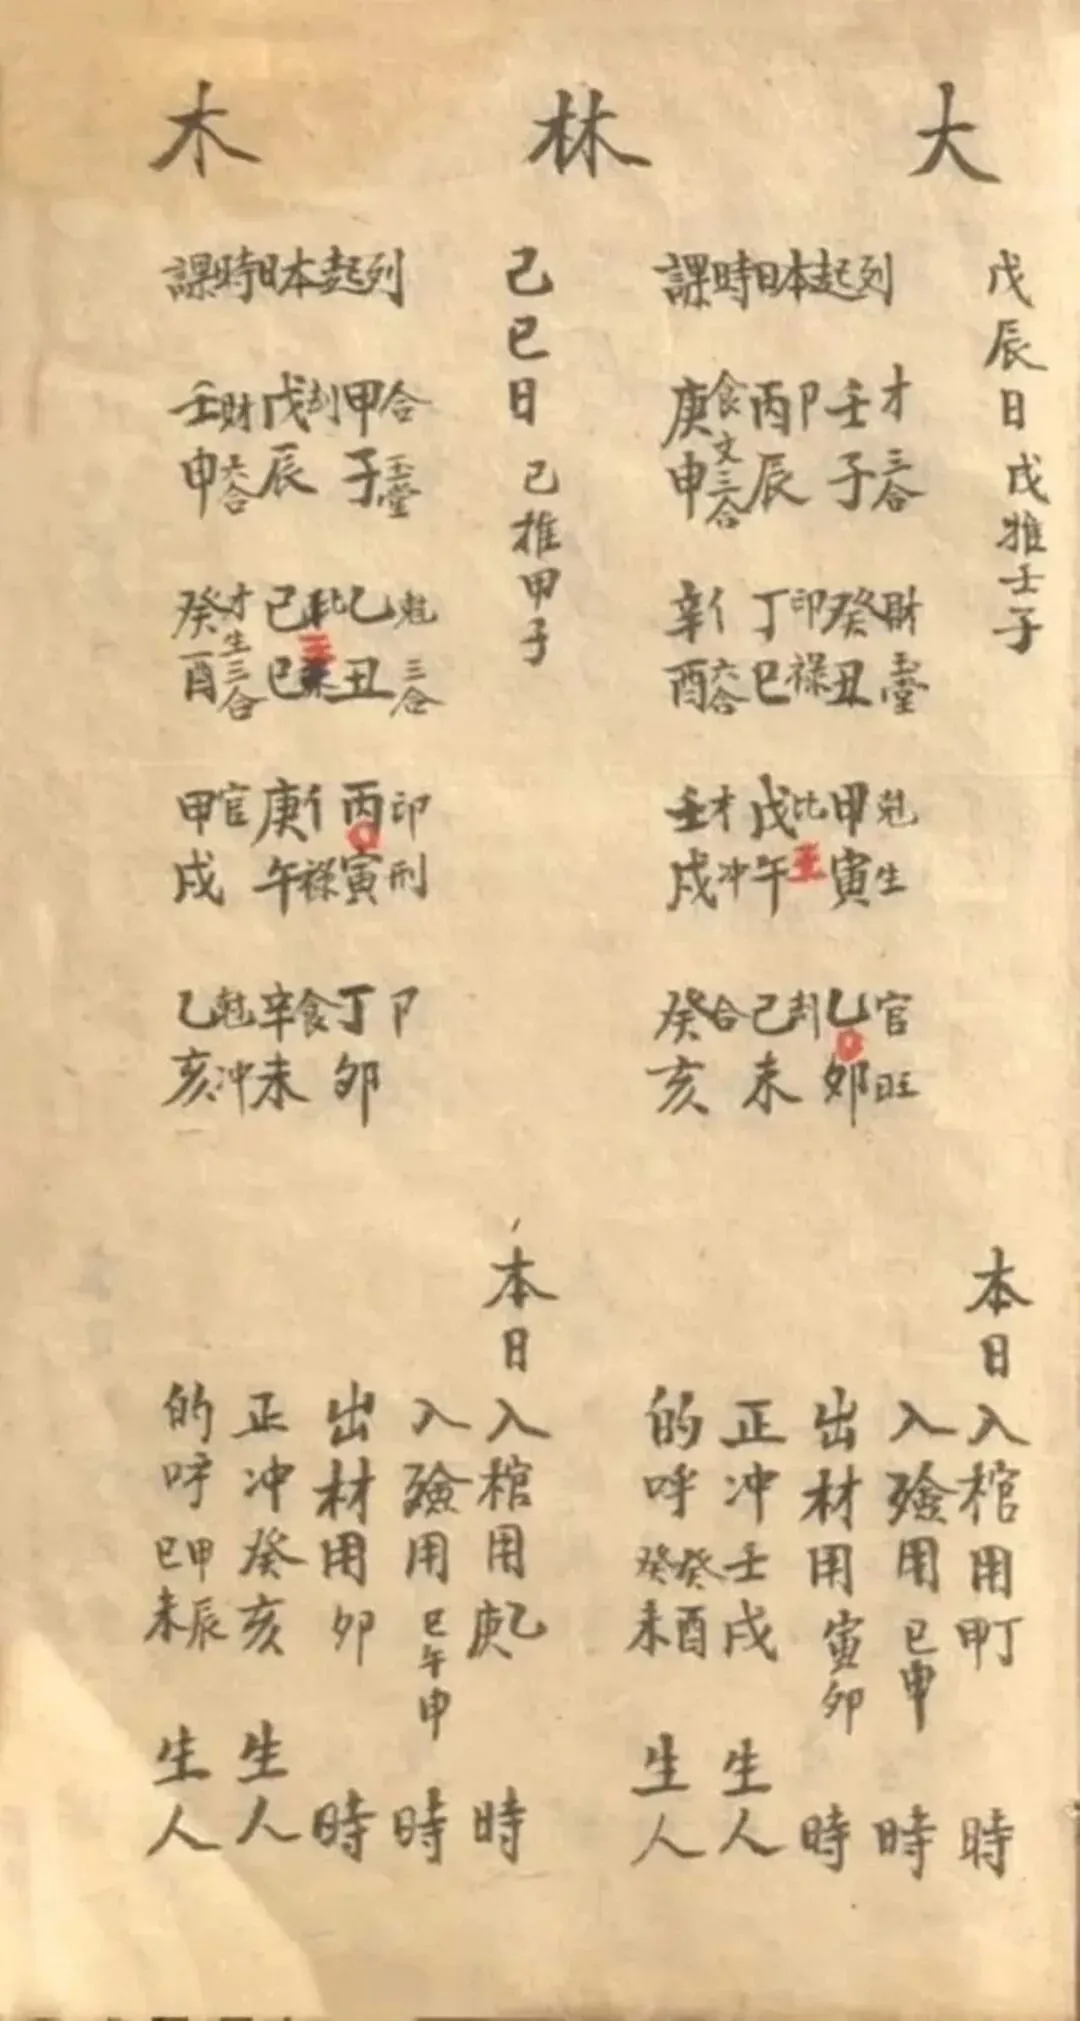 大林木
戊辰日 戊推壬子
列起本日時課
壬子 才 三合
丙辰 卩
庚申 食 文 三合
癸丑 財 玉堂
丁巳 印 祿
辛酉 亻 六合
甲寅 尅 生
戊午 比 王
壬戌 才 冲
乙卯 官 旺
己未 刦
癸亥 合
本日
入棺用甲丁時
入殮用巳申時
出材用寅卯時
正冲壬戌生人
的呼癸酉癸未生人
己巳日 己推甲子
列起本日時課
甲子 合 玉堂
戊辰 刦
壬申 財 六合
乙丑 尅 三合
己巳 比 王
癸酉 才 生 三合
丙寅 印 刑
庚午 亻 祿
甲戌 官
丁卯 卩
辛未 食
乙亥 尅 冲
本日
入棺用乙庚時
入殮用巳午申時
出材用卯時
正冲癸亥生人
的呼甲辰巳未生人